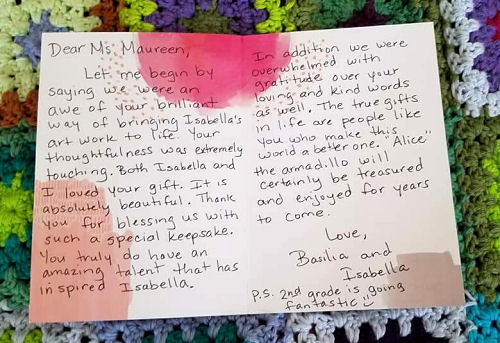 Dear Ms. Maureen,
Let me begin by
saying we were an
awe of your brilliant
way of bringing Isabella's
art work to life. Your
thoughtfulness was extremely
touching. Both Isabella and
I loved your gift. It is
absolutely beautiful. Thank
you for blessing us with
such a special keepsake.
You truly do have an
amazing talent that has
inspired Isabella.
In addition we were
overwhelmed with
gratitude over your
loving and kind words
as well. The true gifts
in life are people like
you who make this
world a better one. "Alice"
the armadillo will
certainly be treasured
and enjoyed for years
to come.
Love,
Basilia and
Isabella
P.S. 2nd grade is going
fantastic